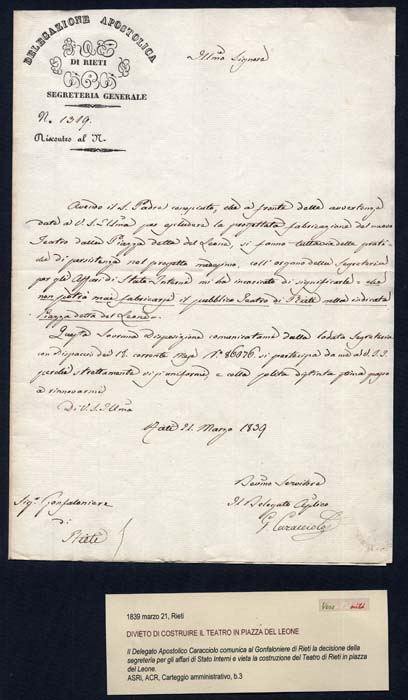 DELEGAZIONE APOSTOLICA
DI RIETI
SEGRETERIA GENERALE
N. 1319.
Riscontro al N.
Illmo Signore
Avendo il S. Padre conosciuto, che a fronte delle avvertenze
date a V. S. Illma per escludere la progettata fabbricazione del nuovo
Teatro dalla Piazza detta del Leone, si fanno tuttavia delle prati-
che di persistenza nel progetto medesimo, coll'organo della Segreteria
per gli Affari di Stato Interni mi ha incaricato di significarle = che
non potrà mai fabbricarsi il pubblico Teatro di Rieti nella indicata
Piazza detta del Leone =
Questa Sovrana Disposizione comunicatami dalla lodata Segreteria
con dispaccio del corrente N° 86076. si partecipa da me a V. S. I.
perchè strettamente vi si uniformi, e colla solita distinta stima passo
a rinnovarmi
Di V. S. Illma
Rieti 21. Marzo 1839
Servitore
Il Delegato Aplico
G. Caracciolo
Sigr Gonfaloniere
di
Rieti
1839 marzo 21, Rieti
DIVIETO DI COSTRUIRE IL TEATRO IN PIAZZA DEL LEONE
Il Delegato Apostolico Caracciolo comunica al Gonfaloniere di Rieti la decisione della
segreteria per gli affari di Stato Interni e vieta la costruzione del Teatro di Rieti in piazza
del Leone.
ASRi, ACR, Carteggio amministrativo, b.3